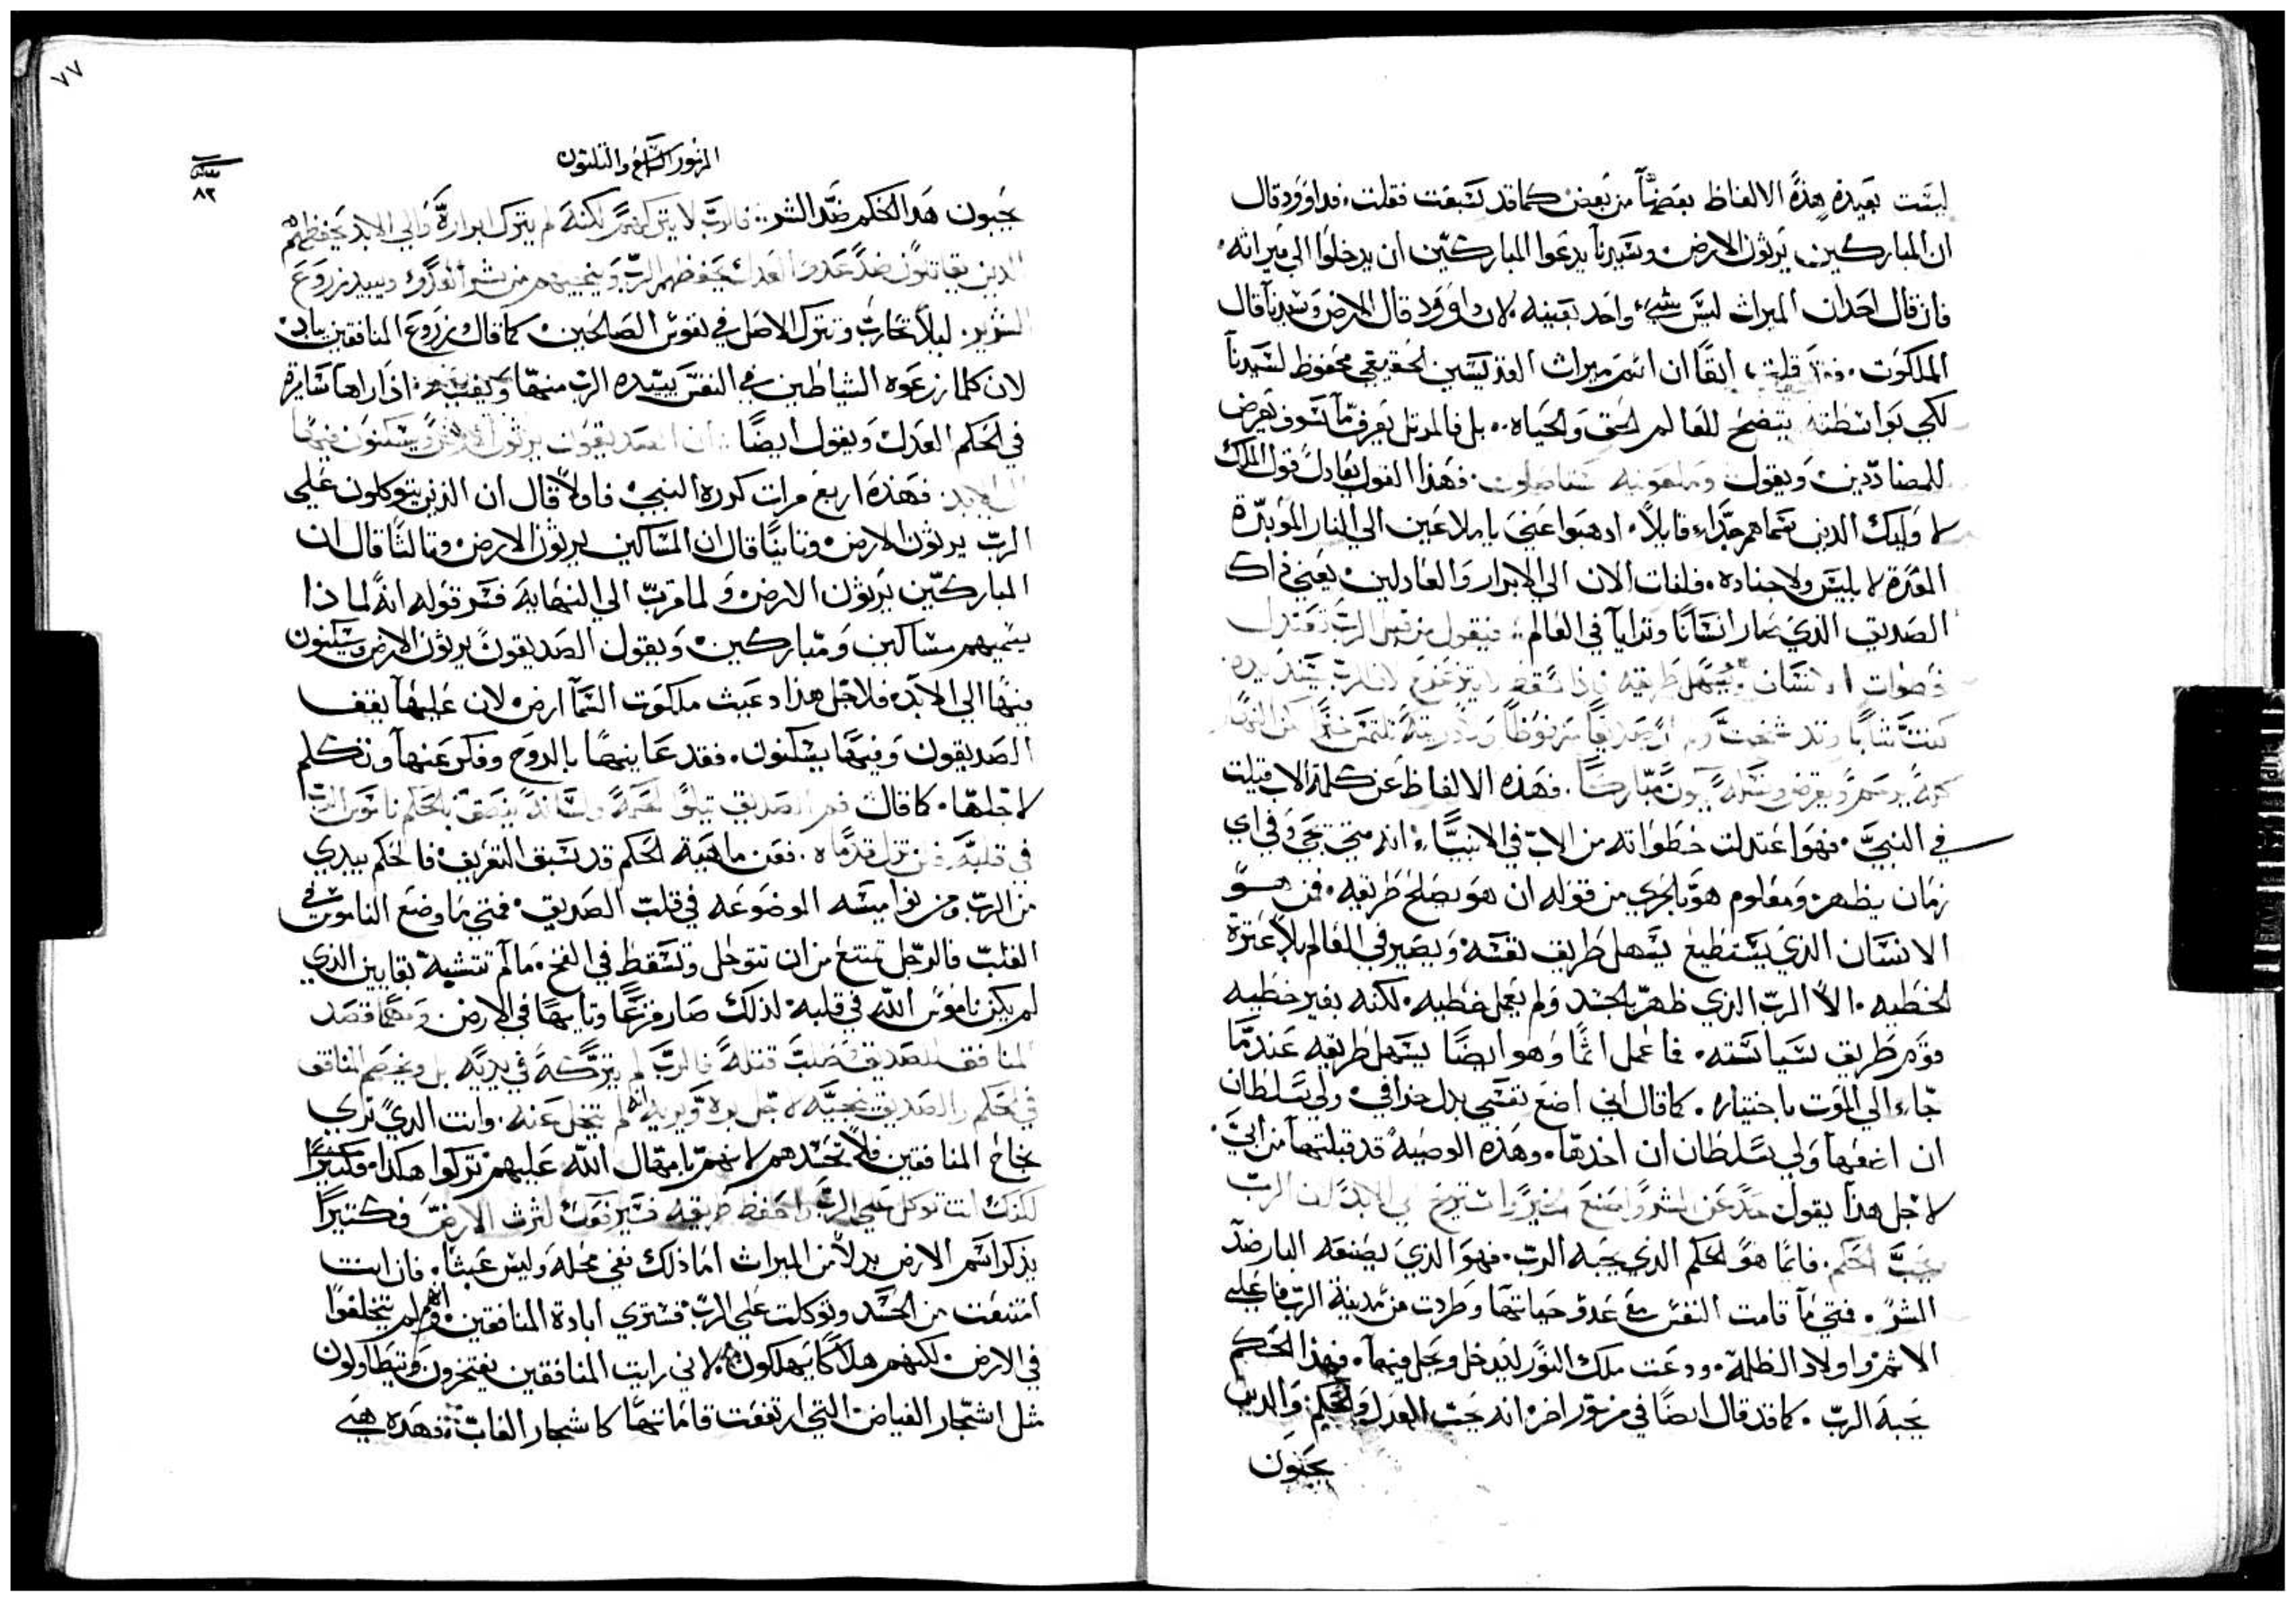 ليست بعيدة هذة الالفاظ بعضها من بعض كما قد تسبقت فقلت. فداوود قال
ان المباركين يرثون الارض وسيدنا يدعوا المباركين ان يدخلوا الي ميراثه.
فان قال احد ان الميراث ليس شيء واحد بعينه لان داوود قال الارض وسيدنا قال
الملكوت. قلت انفًا ان اسم ميراث القديسين الحقيقي محفوظ لسيدنا
لكي بواسطته يتضح للعالم الحق والحياه.. بل فالمرتل يعرف ما سوف يعرض
للمضاددين ويقول فهذا القول يعادل قول الملك
لاوليك الذين عن قايلاً. ادهبوا عني يا ملاعين الي النار الموبدة
المعدة لابليس ولاجناده. فلنات الان الي الابرار والعادلين يعني ذاك
الصديق الذي صار انسانًا وترايا في العالم: فيقول من قبل الرب تعتدل
خطوات الانسان ويسهل طريقه فاذا سقط لا يتزعزع لان الرب يسند يده
كنت شابًا وقد شخت ولم ار صديقًا مرفوضًا ولا ذريته تلتمس خبزًا
يرحم ويقرض ونسله يكون مباركًا. فهذه الالفاظ عن كلمة الاب قيلت
في النبي. فهو اعتدلت خطواته من الاب في الانبيا انه متي يجي وفي اي
زمان يظهر ومعلوم هو بالحري من قوله ان هو يصلح طريقه. فمن هو
الانسان الذي يستطيع يسهل طريق نفسه ويصير في العالم بلا عثرة
الخطيه. الا الرب الذي ظهر بالجسد ولم يعمل خطيه. لكنه بغير خطيه
قوم طريق سياسته. فاعمل اثمًا وهو ايضًا يسهل طريقه عندما
جاء الي الموت باختياره. كما قال اني اضع نفسي بدل خرافي ولي سلطان
ان اضعها ولي سلطان ان اخدها. وهذه الوصية قد قبلتها من ابي.
لاجل هذا يقول حد عن الشر واصنع الخير الي الابد لان الرب
يحب الحكم. فانما هو الحكم الذي يحبه الرب. فهو الذي يصنعه البار ضد
الشر. فمتي ما قامت النفس مع عدو حياتها وطردت من مدينة الرب فاعلي
الاثم واولاد الظلمة. ودعت ملك النور ليدخل ويحل فيها. فهذا الحكم
يحبه الرب. كما قد قال ايضًا في مزمور اخر انه يحب العدل والحكم والدين
يحبون
٧٧
المزمور السادس والتلتون
٨٣
يحبون هذا الحكم ضد الشر: فالرب لا يتركهم لكنه لم يترك ابراره والي الابد يحفظهم
الدين يقاتلون ضد عدو العدل يحفظهم الرب وينجيهم من شر العدو ويبيد زروع
الشرير. ليلا تحارب وتترك الاصل في نفوس الصالحين كما قال زروع المنافقين يباد
لان كلما زرعوه الشياطين في النفس يبيده الرب منها ويفنيه: اذا راها سايرة
في الحكم العدل ويقول ايضًا: ان الصديقون يرثون الارض ويسكنون فيها
الي الابد فهذه اربع مرات كررة النبي فاولاً قال ان الذين يتوكلون علي
الرب يرثون الارض وثانيًا قال ان المساكين يرثون الارض وثالثًا قال ان
المباركين يرثون الارض ولما قرب الي النهاية فسر قوله انه لماذا
يسميهم مساكين ومباركين ويقول الصديقون يرثون الارض ويسكنون
فيها الي الابد فلاجل هذا دعيت ملكوت السما ارض لان عليها يقف
الصديقون وفيها يسكنون. فقد عاينها بالروح وفكر عنها وتكلم
لاجلها. كما قال فم الصديق يتلوا الحكمة ولسانه ينطق بالحكم ناموس الرب
في قلبه فلن تزل قدماه. فعن ماهية الحكم قد سبق التعريف فالحكم يبدي
من الرب ومن نواميسه الموضوعه في قلب الصديق. فمتي ما وضع الناموس في
القلب فالرجل تمتنع من ان تتوحل وتسقط في الفخ. ما لم تتشبه بقايين الذي
لم يكن ناموس الله في قلبه لذلك صار فزعًا وتايهًا في الارض. ومهما قصد
المنافق للصديق وطلب قتله فالرب لم يتركه في يديه بل ويخصم المنافق
في الحكم والصديق ينجيه لاجل بره ويريه انه لم يتخل عنه. وانت الدي تري
نجاح المنافقين فلا تحسدهم لانهم بامهال الله عليهم تركوا هكدا. وكثيرًا
لكنك انت توكل علي الرب واحفظ طريقه فسيرفعك لترث الارض وكثيرًا
يذكر اسم الارض بدلاً من الميراث اما ذلك نفي محله وليس عبثًا. فان انت
امتنعت من الحسد وتوكلت علي الرب فستري ابادة المنافقين وانهم لم يتخلفوا
في الارض لكنهم هلاكًا يهلكون. لاني رايت المنافقين يفتخرون ويتطاولون
مثل اشجار الغياض التي ارتفعت قاماتها كاشجار الغاب فهذه هي